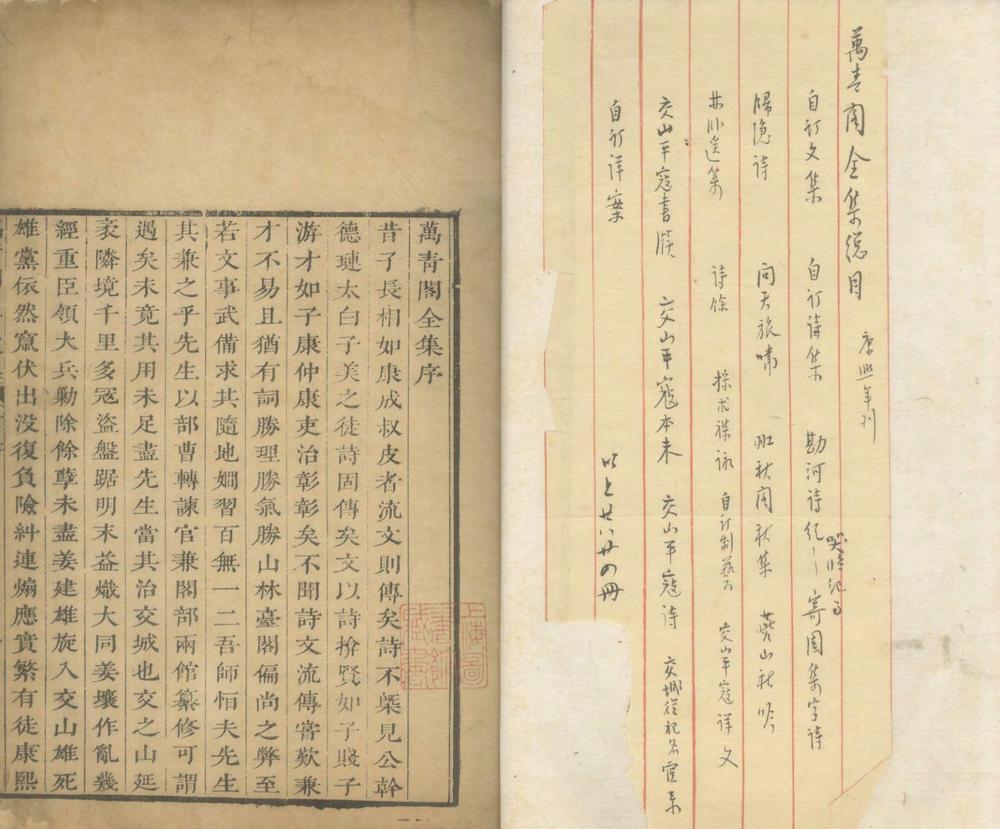 萬青閣全集總目 康熙年刊
自訂文集 自訂詩集 勘河詩紀 寄園集字詩
哭臨紀事
歸隱詩 問天旅嘯 秋集 燕山秋吟
詩餘 探求襍詠 自訂制藝 交山平寇詳文
交山平寇書牘 交山平寇本末 交山平寇詩 交城從祀名宦錄
自訂詳案 以上廿八卄四冊
萬青閣全集序
昔子長相如康成叔皮者流文則傳矣詩不槩見公幹
德璉太白子美之徒詩固傳矣文以詩揜賢如子賤子
游才如子康仲康吏治彰彰矣不聞詩文流傳嘗歎兼
才不易且猶有詞勝理勝氣勝山林臺閣偏尚之弊至
若文事武備求其隨地嫺習百無一二吾師恒夫先生
其兼之乎先生以部曹轉諫官兼閣部兩館纂修可謂
遇矣未竟其用未足盡先生當其治交城也交之山延
袤隣境千里多寇盜盤踞明末益熾大同姜壤作亂幾
經重臣領大兵勦除餘孽未盡姜建雄旋入交山雄死
雄黨依然竄伏出没復負險糾連煽應實繁有徒康熙